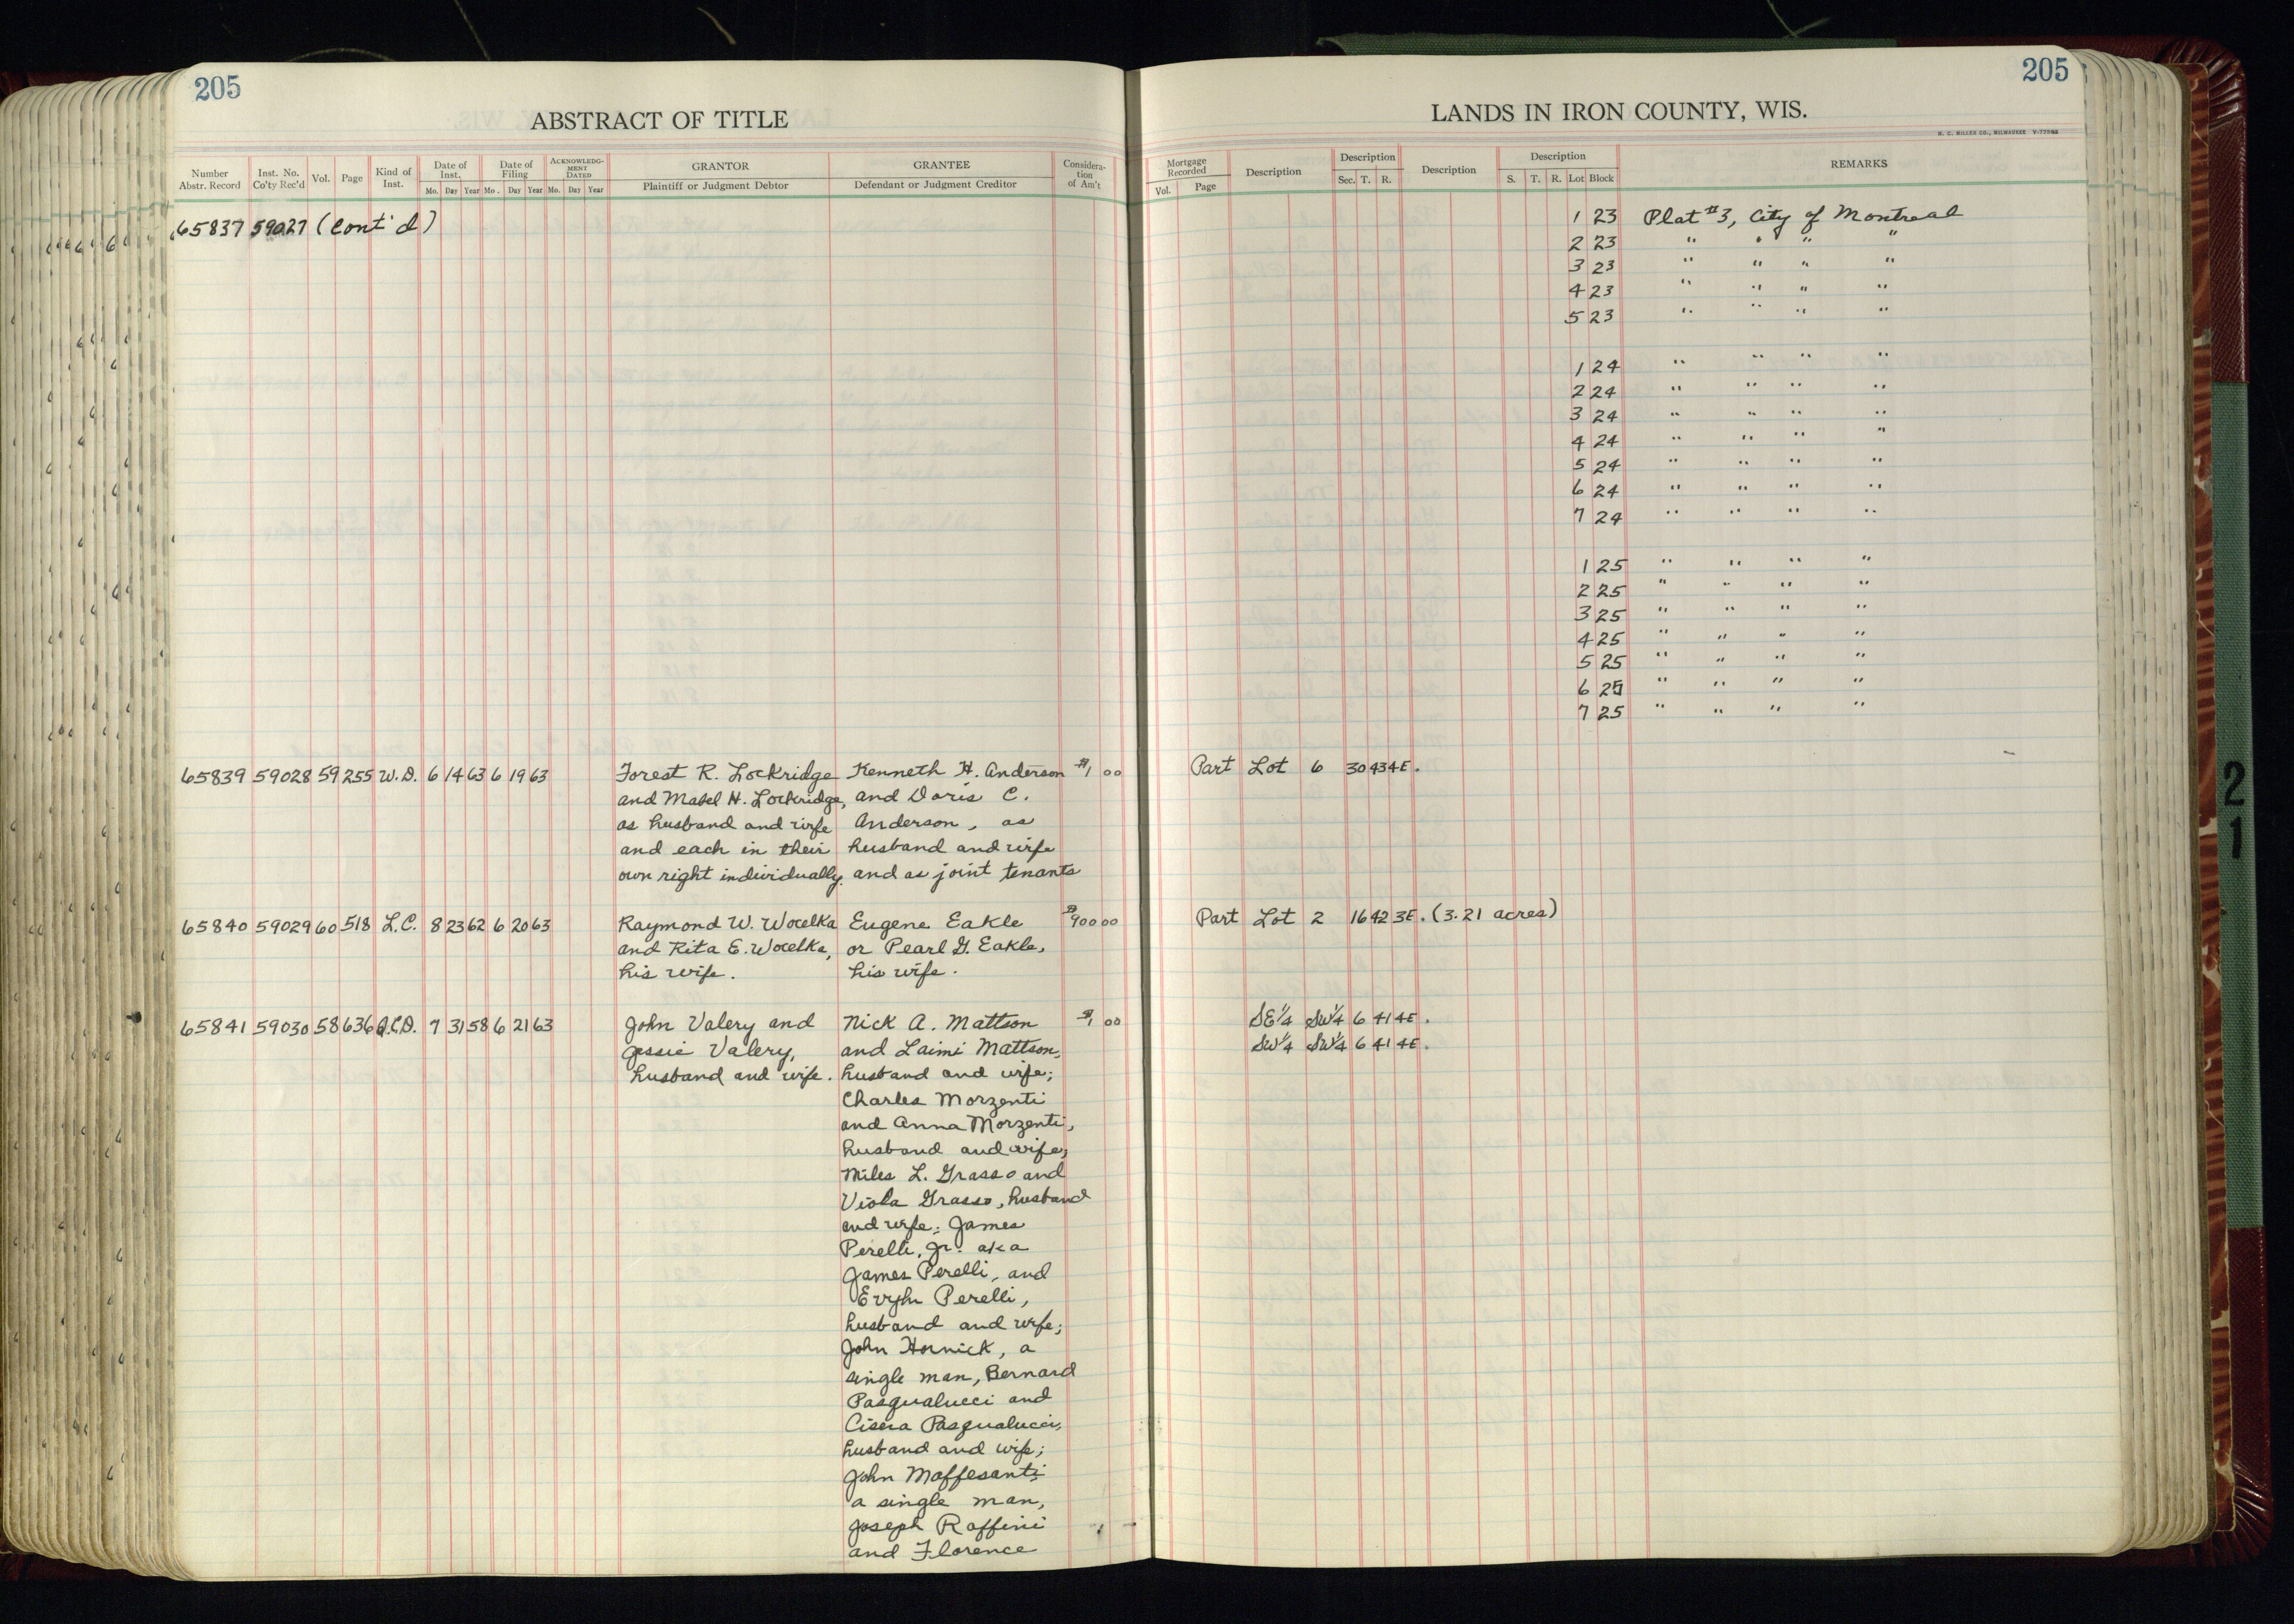 205
ABSTRACT OF TITLE
Number Abstr. Record
Inst. No. Co'ty Rec'd
Vol.
Page
Kind of Inst.
Date of Inst.
Mo. Day Year
Date of Filing
Mo. Day Year
ACKNOWLEDGMENT DATED
Mo. Day Year
GRANTOR
Plaintiff or Judgment Debtor
GRANTEE
Defendant or Judgment Creditor
Consideration of Am't
65837 59027 (Cont'd)
65839 59028 59 255 W.D. 6 14 63 6 19 63 Forest R. Lockridge Kenneth H. Anderson $1 00
and Mabel H. Lockridge, and Doris C.
as husband and wife Anderson, as
and each in their husband and wife
own right individually. and as joint tenants
65840 59029 60 518 L.C. 8 23 62 6 20 63 Raymond W. Wocelka Eugene Eakle $900 00
and Rita E. Wocelka, or Pearl G. Eakle,
his wife. his wife.
65841 59030 58 636 Q.C.D. 7 31 58 6 21 63 John Valery and Nick A. Mattson $1 00
Jessie Valery, and Laimi Mattson,
husband and wife. husband and wife;
Charles Morzenti
and Anna Morzenti,
husband and wife;
Miles L. Grasso and
Viola Grasso, husband
and wife; James
Perelli, Jr. aka
James Perelli, and
Perelli,
husband and wife;
John Hornick, a
single man, Bernard
Pasqualucci and
Pasqualucci,
husband and wife;
John Maffesanti
a single man,
Joseph Raffini
and Florence
205
LANDS IN IRON COUNTY, WIS.
H. C. MILLER CO., MILWAUKEE
Mortgage Recorded
Vol. Page
Description
Description
Sec. T. R.
Description
Description
S. T. R. Lot Block
REMARKS
1 23 Plat #3, City of Montreal
2 23 " " " "
3 23 " " " "
4 23 " " " "
5 23 " " " "
1 24 " " " "
2 24 " " " "
3 24 " " " "
4 24 " " " "
5 24 " " " "
6 24 " " " "
7 24 " " " "
1 25 " " " "
2 25 " " " "
3 25 " " " "
4 25 " " " "
5 25 " " " "
6 25 " " " "
7 25 " " " "
Part Lot 6 30 43 4E.
Part Lot 2 16 42 3E. (3.21 acres)
SE¼ SW¼ 6 41 4E.
SW¼ SW¼ 6 41 4E.
21